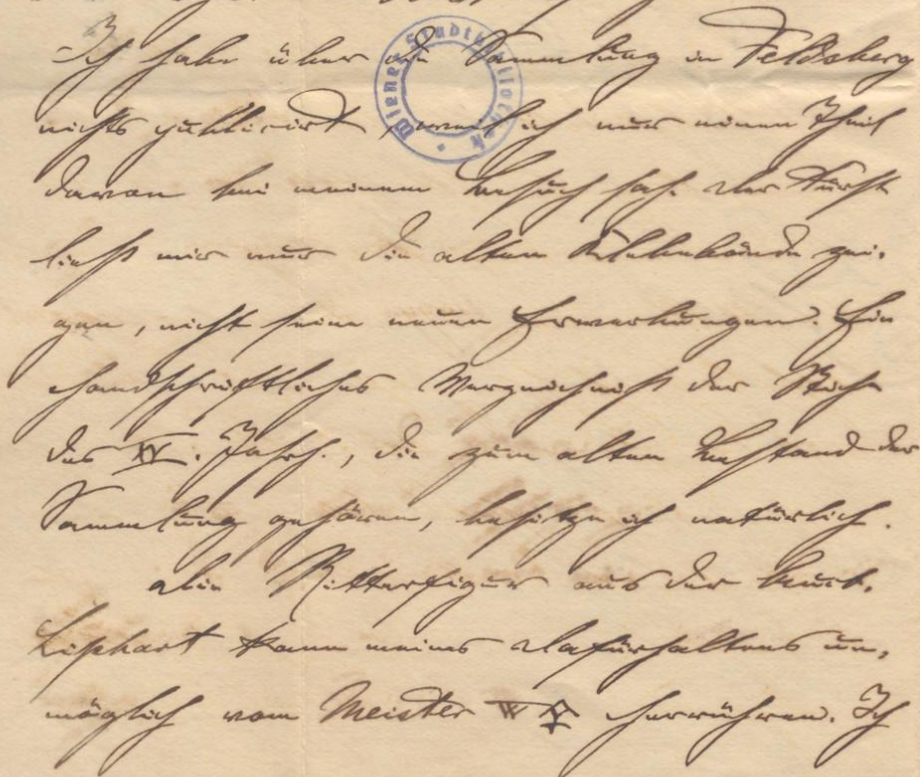 Ich habe über die Sammlung in Feldsberg
nichts publicirt, weil ich nur einen Theil
davon bei meinem Besuch sah. Der Fürst
ließ mir nur die alten Klebebände zei-
gen, nicht seine neuen Erwerbungen. Ein
handschriftliches Verzeichniß der Stiche
des XV. Jahrh., die zum alten Bestand der
Sammlung gehören, besitze ich natürlich.
Die Ritterfigur aus der Auct.
Liphart kann meines Dafürhaltens un-
möglich vom Meister W herrühren. Ich
Wiener Stadtbibliothek